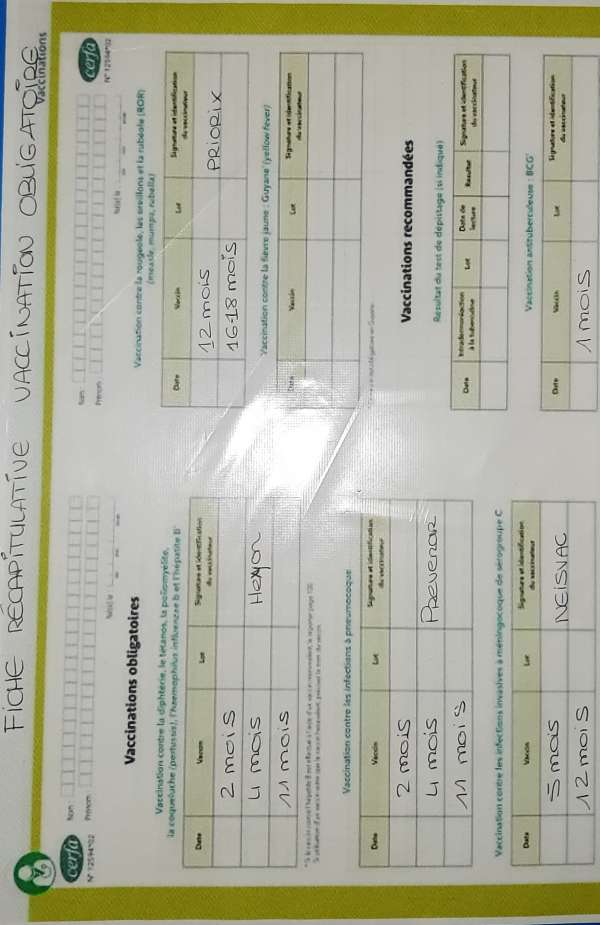 FICHE RÉCAPITULATIVE VACCINATION OBLIGATOIRE
Vaccinations
cerfa
N° 12594*02
Nom
Prénom
Né(e) le
Vaccinations obligatoires
Vaccination contre la diphtérie, le tétanos, la poliomyélite,
la coqueluche (pertussis), l'Haemophilus influenzae b et l'hépatite B*
Date Vaccin Lot Signature et identification du vaccinateur
2 mois
4 mois HEXYON
11 mois
Vaccination contre les infections à pneumocoque
Date Vaccin Lot Signature et identification du vaccinateur
2 mois
4 mois PREVENAR
11 mois
Vaccination contre les infections invasives à méningocoque de sérogroupe C
Date Vaccin Lot Signature et identification du vaccinateur
5 mois NEISVAC
12 mois
cerfa
N° 12594*02
Nom
Prénom
Né(e) le
Vaccination contre la rougeole, les oreillons et la rubéole (ROR)
(measle, mumps, rubella)
Date Vaccin Lot Signature et identification du vaccinateur
12 mois PRIORIX
16-18 mois
Vaccination contre la fièvre jaune : Guyane (yellow fever)
Date Vaccin Lot Signature et identification du vaccinateur
Vaccinations recommandées
Résultat du test de dépistage (si indiqué)
Date Intradermoréaction à la tuberculine Lot Date de lecture Résultat Signature et identification du vaccinateur
Vaccination antituberculeuse : BCG
Date Vaccin Lot Signature et identification du vaccinateur
1 mois